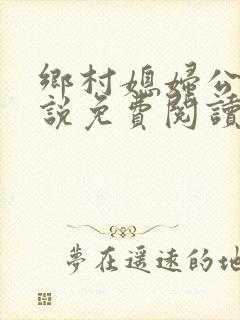 鄉村媳婦公
說免費閱讀
夢在遥遠的地